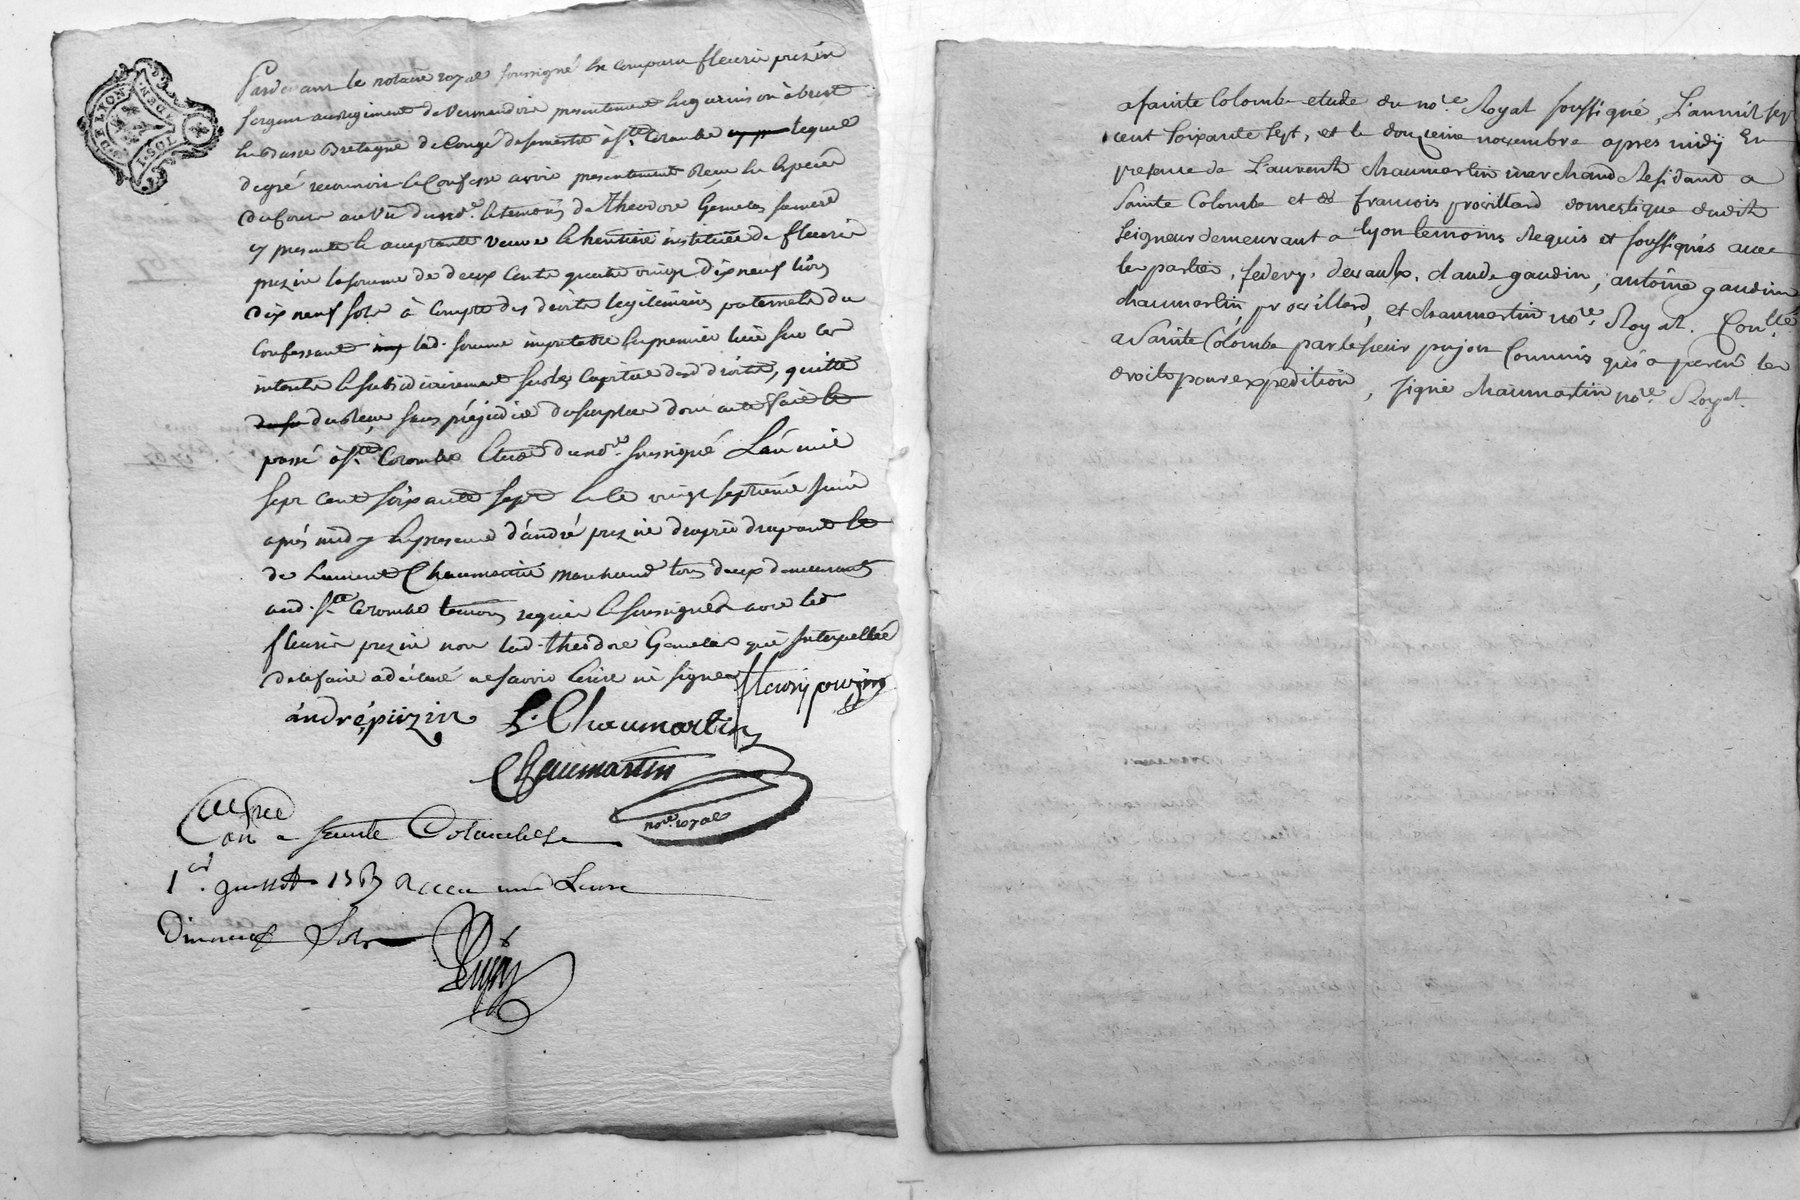 G. DE LYON
Pardevant le notaire royal soussigné est comparu fleurie prezin
sergent au regiment de vermandois presentement en garnison à brest
en Basse Bretagne de Congé de semestre à Ste Colombe lequel
de gré reconnoit et Confesse avoir presentement Receu en Especes
du Cours au vû du nore et temoins de Theodore Gemelas sa mere
y presente et acceptante veuve et heritiere instituée de fleurie
prezin la somme de deux Cents quatre vingt dix neuf livres
dix neuf sols à Compte des droits legitimaires paternels du
Confessant lad. somme imputable en premier lieu sur les
interets et subsidiairement sur les Capitaux desd droits, quitte
du Receu sans préjudice du surplus dont acte fait et
passé à Ste Colombe Etude du nore soussigné L'an mil
sept cent soixante sept et le vingt septieme juin
après midy en presence d'andré prezin drapier drapant et
de Laurent Chaumartin marchand tous deux demeurants
aud. Ste Colombe temoins requis et soussignés avec led
fleurie prezin non lad. theodore Gemelas qui Interpellée
de le faire a déclaré ne savoir écrire ni signer fleury prezin
andré prezin L. Chaumartin
Chaumartin
nore royal
Controllé a Sainte Colombe le
1er juillet 1767 Receu une Livre
Dixneuf Sols
Pujon
a sainte Colombe etude du nore Royal soussigné, L'an mil sept
cent soixante sept, et le douzieme novembre apres midy En
presence de Laurent chaumartin marchand Residant a
Sainte Colombe et de francois provillard domestique dudit
seigneur demeurant a lyon temoins Requis et soussignés avec
les parties, federy, devaulx, claude gaudin, antoine gaudin
chaumartin provillard, et chaumartin nore. Royal. Conllé
a Sainte Colombe par le sieur pujon Commis qui a perceu les
droits pour expedition, signé chaumartin nore. Royal.